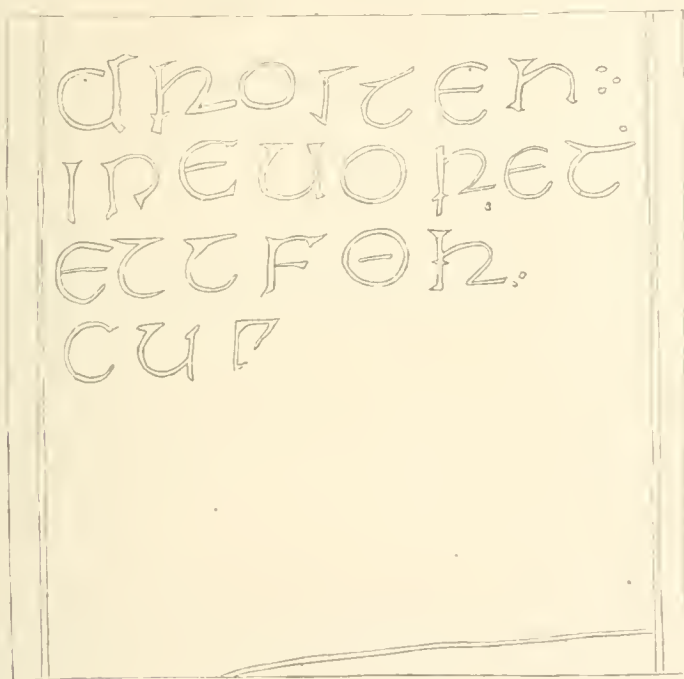 DROSTEN:
IPEUORET
ETTFOR:
CUS